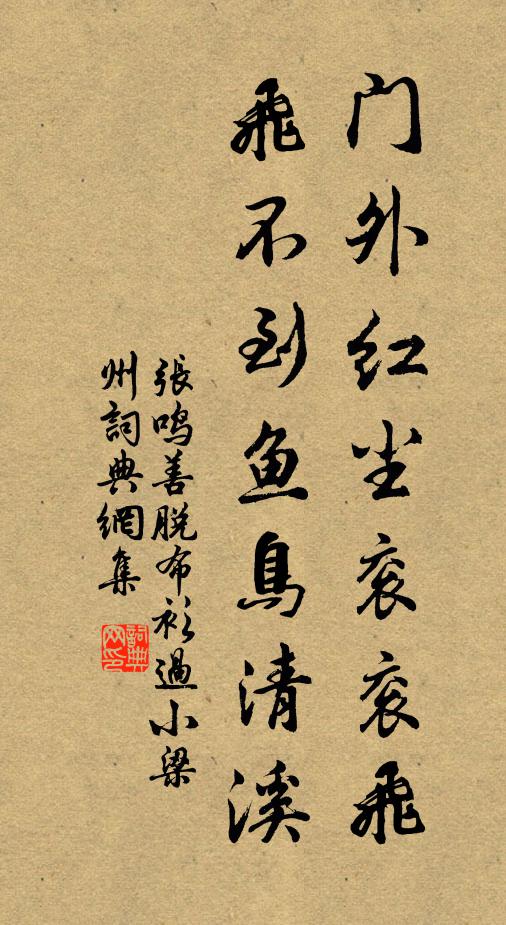 门外红尘衮衮飛
飛不到鱼鳥清溪
張鸣善脱布衫過小梁
州詞典網集
詞典网印